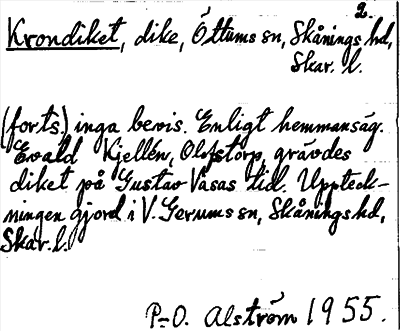 2.
Krondiket, dike, Öttums sn, Skånings hd,
Skar. l.
(forts.) inga bevis. Enligt hemmansäg.
Evald Kjellén, Olofstorp, grävdes
diket på Gustav Vasas tid. Uppteck-
ningen gjord i V. Gerums sn, Skånings hd,
Skar. l.
P-O. Alström 1955.